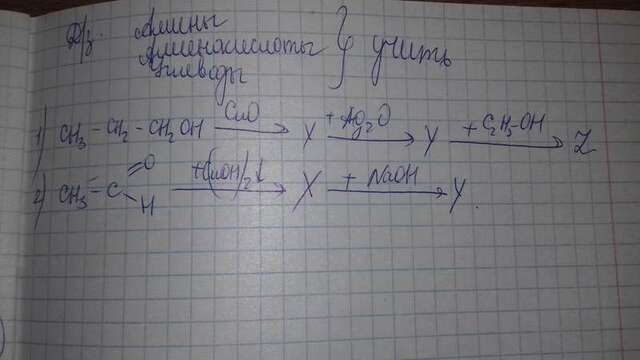 Д/з. Амины
Аминокислоты } учить
Углеводы
1) CH₃ - CH₂ - CH₂OH CuO → X + Ag₂O → Y + C₂H₅-OH → Z
2) CH₃ - C O H + Cu(OH)₂↓ → X + NaOH → Y.